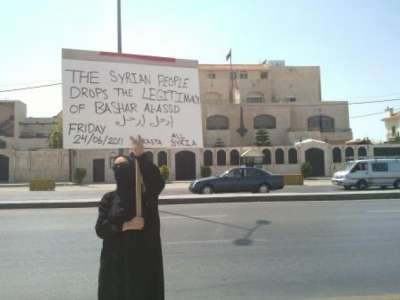 THE SYRIAN PEOPLE
DROPS THE LEGITIMACY
OF BASHAR ALASSD
FRIDAY إرحل إرحل
24/06/2011 ALL
SYRIA